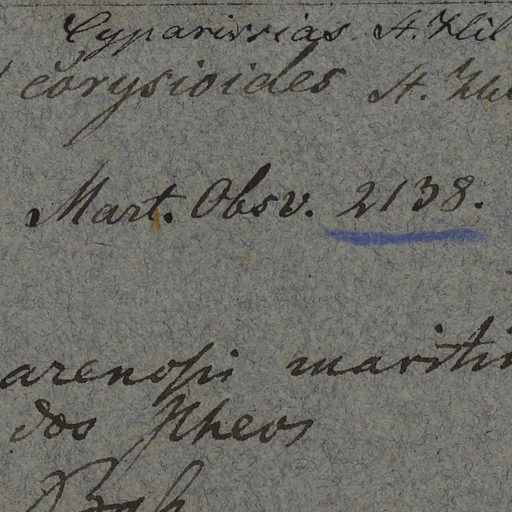 Cyparissias St. Hil
corysioides St. Hil
Mart. Obsv. 2138.
arenosis mariti
dos Ilheos
Bah